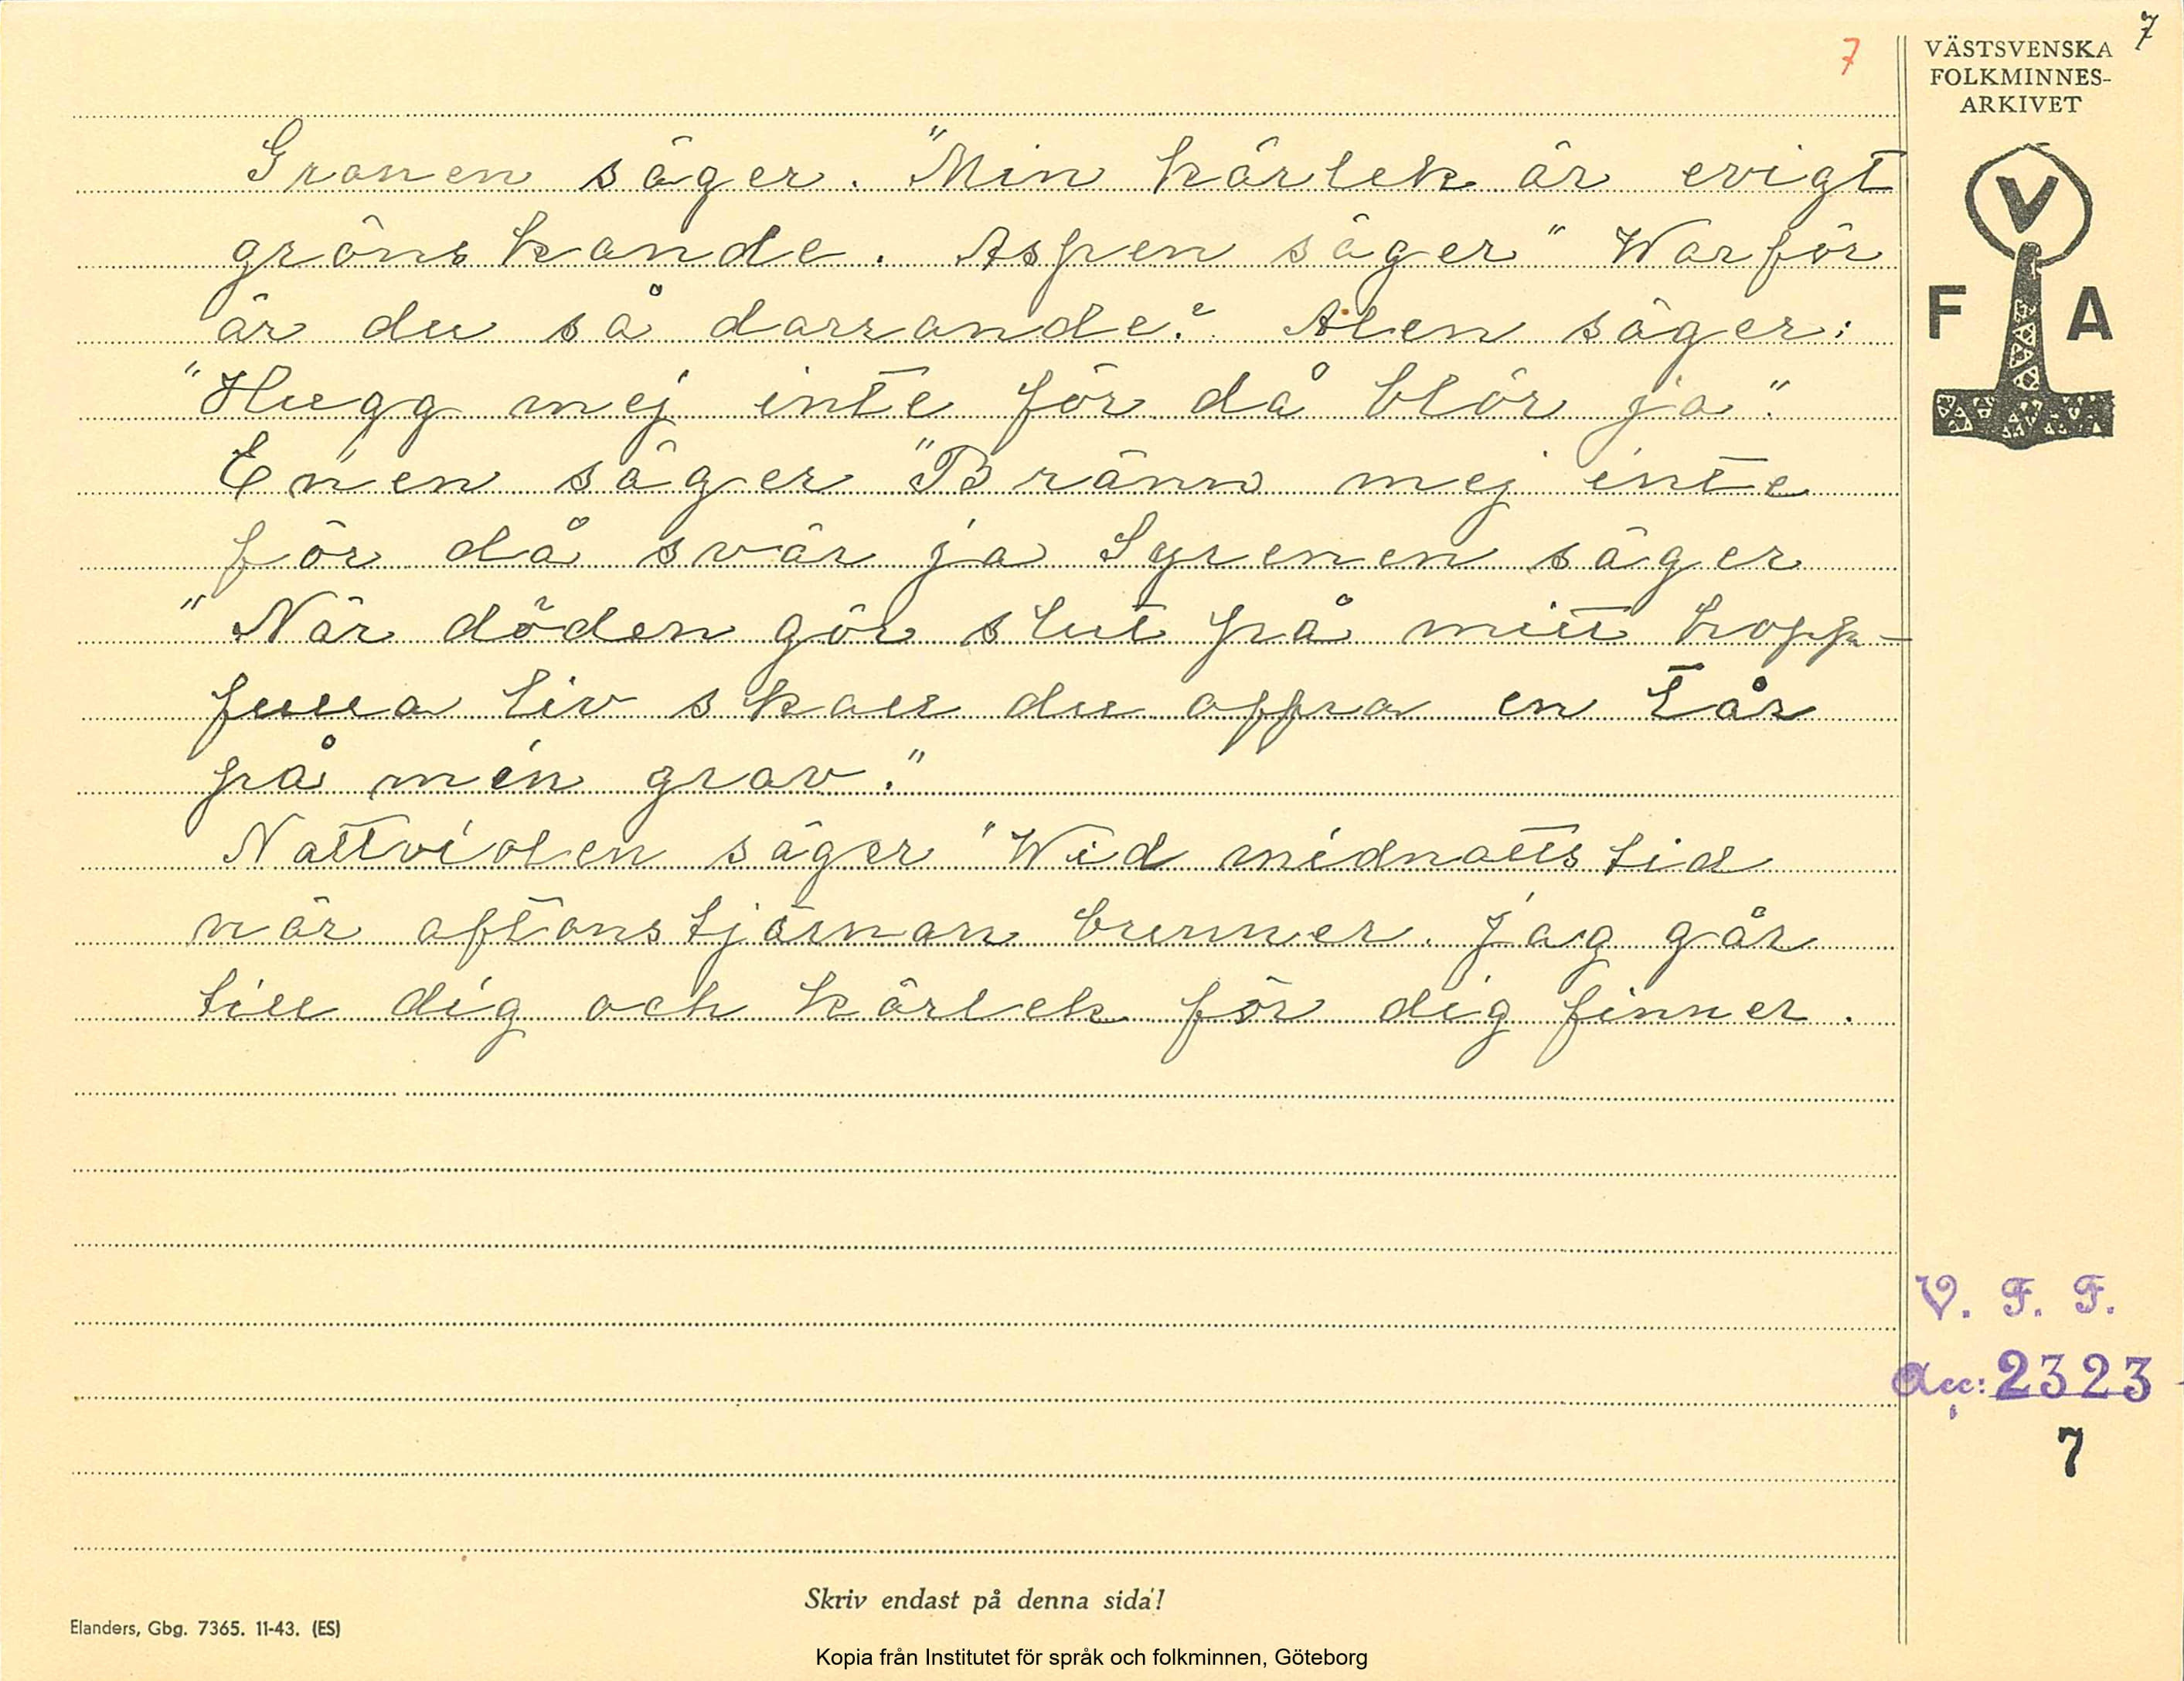 7
7
VÄSTSVENSKA
FOLKMINNES-
ARKIVET
V
F A
Granen säger. "Min kärlek är evigt
grönskande. Aspen säger" Warför
är du så darrande? Alen säger:
"Hugg mej inte för då blör ja"
Enen säger "Bränn mej inte
för då svär ja Syrenen säger
"När döden gör slut på mitt hopp-
fulla liv skall du offra en tår
på min grav."
Nattviolen säger "Wid midnattstid
när aftonstjärnan brinner. Jag går
till dig och kärlek för dig finner.
V. F. F.
Acc: 2323
7
Skriv endast på denna sida!
Elanders, Gbg. 7365. 11-43. (ES)
Kopia från Institutet för språk och folkminnen, Göteborg